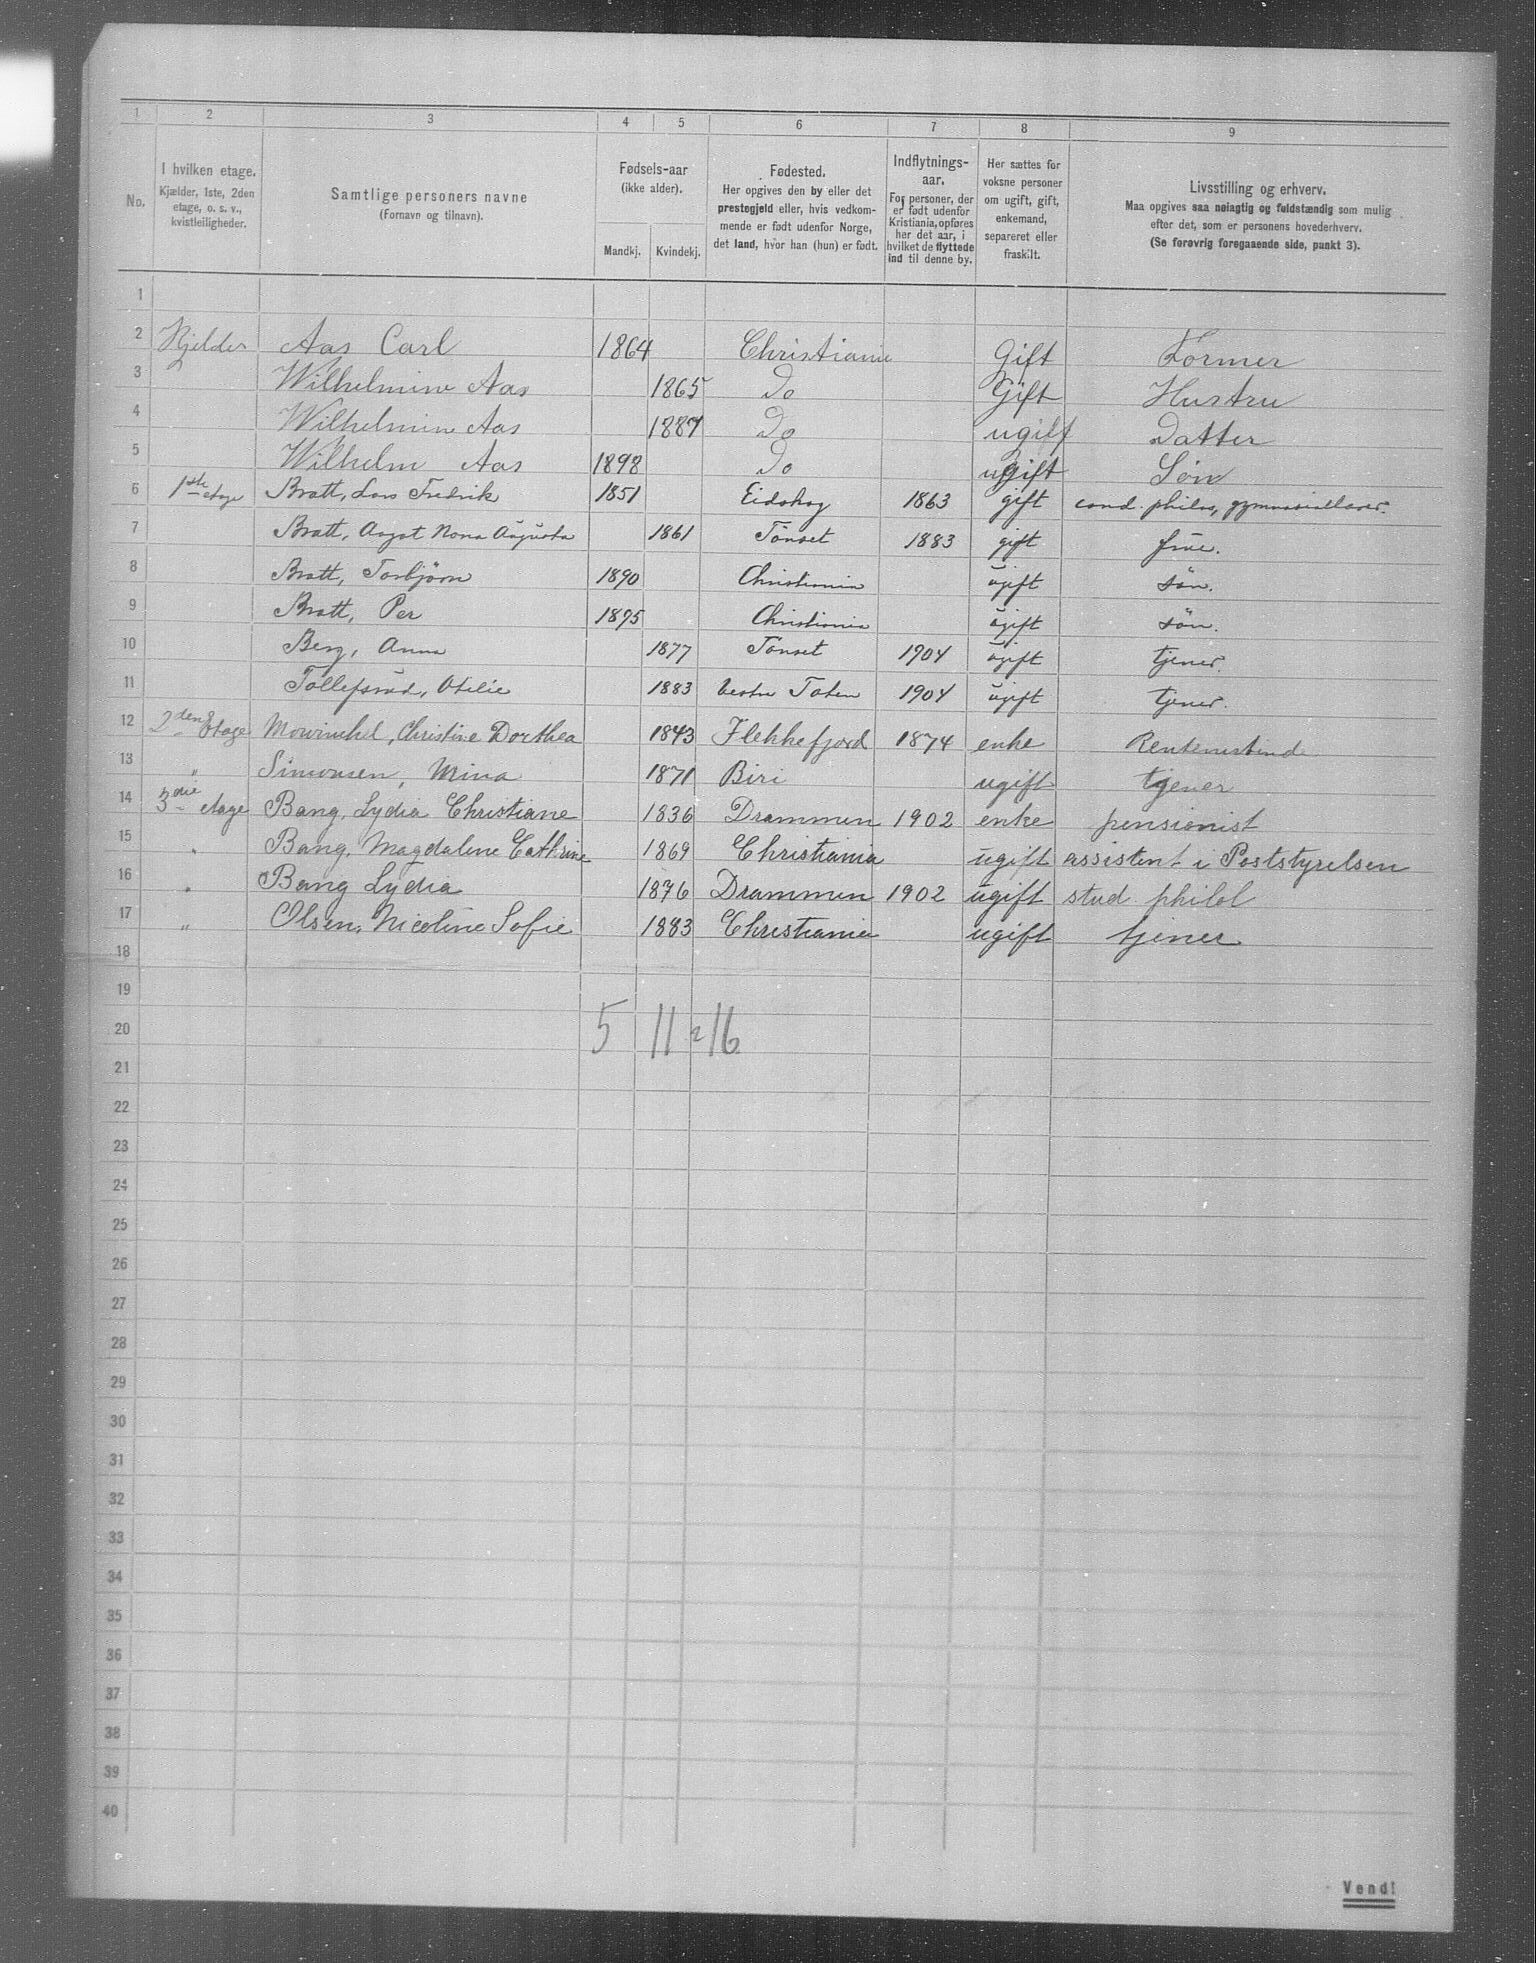 1 2 3 4 5 6 7 8 9
No.
I hvilken etage.
Kjælder, 1ste, 2den
etage, o. s. v.,
kvistleiligheder.
Samtlige personers navne
(Fornavn og tilnavn).
Fødsels-aar
(ikke alder).
Mandkj. Kvindekj.
Fødested.
Her opgives den by eller det
prestegjeld eller, hvis vedkom-
mende er født udenfor Norge,
det land, hvor han (hun) er født.
Indflytnings-
aar.
For personer, der
er født udenfor
Kristiania, opføres
her det aar, i
hvilket de flyttede
ind til denne by.
Her sættes for
voksne personer
om ugift, gift,
enkemand,
separeret eller
fraskilt.
Livsstilling og erhverv.
Maa opgives saa nøiagtig og fuldstændig som mulig
efter det, som er personens hovederhverv.
(Se forøvrig foregaaende side, punkt 3).
1
2 Kjelder Aas Carl 1864 Christiania Gift Former
3 Wilhelmine Aas 1865 Do Gift Hustru
4 Wilhelmine Aas 1887 Do ugift Datter
5 Wilhelm Aas 1898 Do ugift Søn
6 1ste etage Bratt, Lars Fredrik 1851 Eidskog 1863 gift cand. philos, gymnasiallærer.
7 Bratt, Nora Augusta 1861 Tönset 1883 gift frue.
8 Bratt, Torbjörn 1890 Christiania ugift sön.
9 Bratt, Per 1895 Christiania ugift sön.
10 Berg, Anna 1877 Tönset 1904 ugift tjener.
11 Tollefsrud, Otilie 1883 Vestre Toten 1904 ugift tjener.
12 2den Etage Mowinckel, Christine Dorthea 1843 Flekkefjord 1874 enke Rentenistinde
13 " Simonsen, Mina 1871 Biri ugift tjener
14 3die etage Bang, Lydia Christiane 1836 Drammen 1902 enke pensionist
15 " Bang, Magdalene Cathrine 1869 Christiania ugift assistent i Poststyrelsen
16 " Bang Lydia 1876 Drammen 1902 ugift stud. philol
17 " Olsen, Nicoline Sofie 1883 Christiania ugift tjener
18
19
20 5 11 = 16
21
22
23
24
25
26
27
28
29
30
31
32
33
34
35
36
37
38
39
40
Vend!